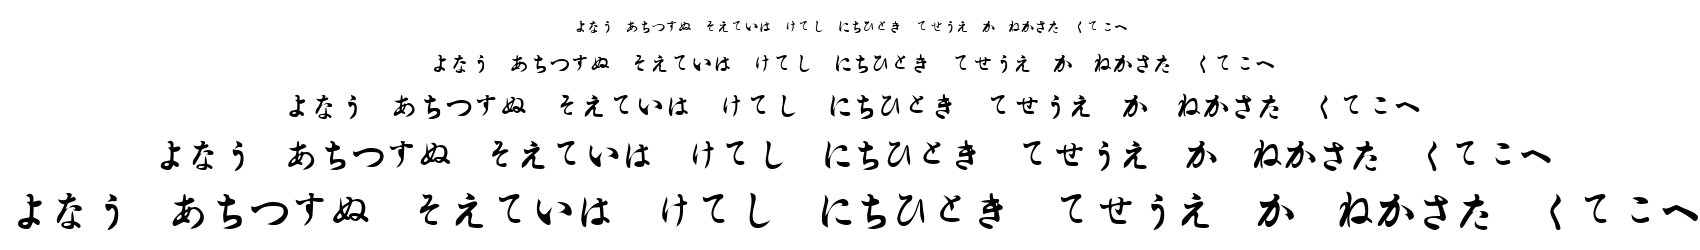 よなう あちつすぬ そえていは けてし にちひとき てせうえ か ねかさた くてこへ
よなう あちつすぬ そえていは けてし にちひとき てせうえ か ねかさた くてこへ
よなう あちつすぬ そえていは けてし にちひとき てせうえ か ねかさた くてこへ
よなう あちつすぬ そえていは けてし にちひとき てせうえ か ねかさた くてこへ
よなう あちつすぬ そえていは けてし にちひとき てせうえ か ねかさた くてこへ